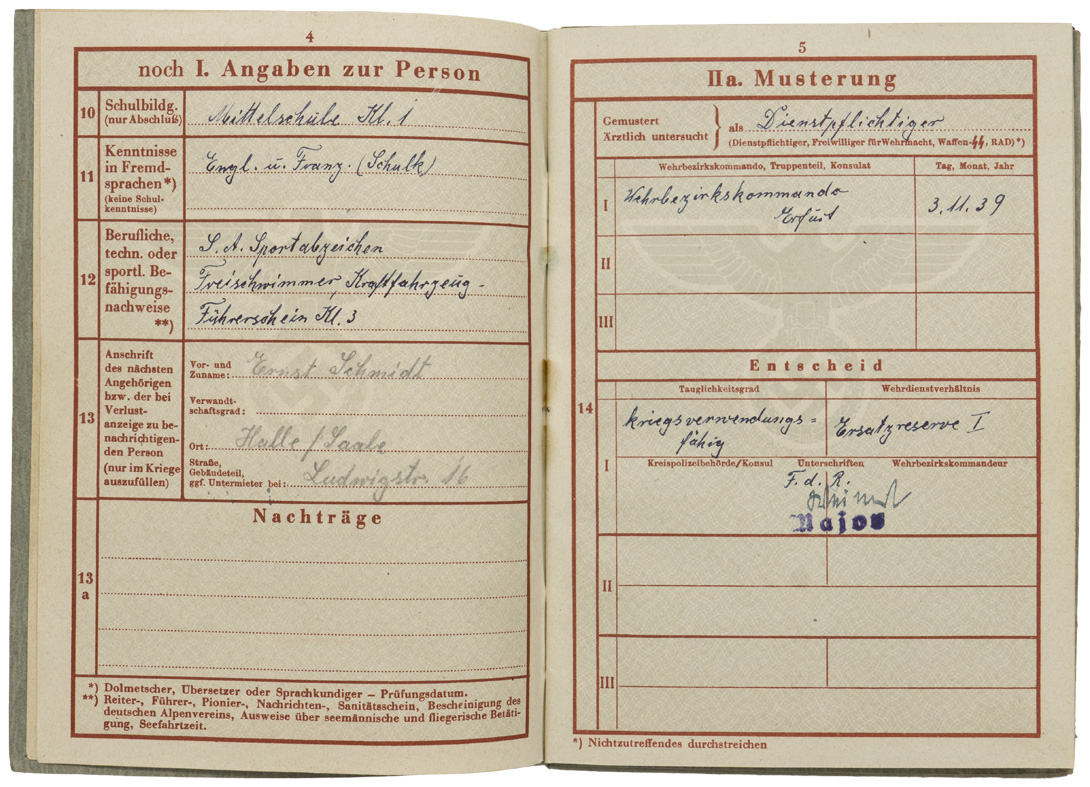 4
noch I. Angaben zur Person
10
Schulbildg.
(nur Abschluß)
Mittelschule Kl. 1
11
Kenntnisse
in Fremd-
sprachen*)
(keine Schul-
kenntnisse)
Engl. u. Franz. (Schulk)
12
Berufliche,
techn. oder
sportl. Be-
fähigungs-
nachweise
**)
S. A. Sportabzeichen
Freischwimmer, Kraftfahrzeug-
Führerschein Kl. 3
13
Anschrift
des nächsten
Angehörigen
bzw. der bei
Verlust-
anzeige zu be-
nachrichtigen-
den Person
(nur im Kriege
auszufüllen)
Vor- und
Zuname: Ernst Schmidt
Verwandt-
schaftsgrad:
Ort: Halle / Saale
Straße,
Gebäudeteil,
ggf. Untermieter bei: Ludwigstr. 16
Nachträge
13
a
*) Dolmetscher, Übersetzer oder Sprachkundiger – Prüfungsdatum.
**) Reiter-, Führer-, Pionier-, Nachrichten-, Sanitätsschein, Bescheinigung des
deutschen Alpenvereins, Ausweise über seemännische und fliegerische Betäti-
gung, Seefahrtzeit.
5
IIa. Musterung
14
Gemustert
Ärztlich untersucht } als Dienstpflichtiger
(Dienstpflichtiger, Freiwilliger für Wehrmacht, Waffen-SS, RAD)*)
Wehrbezirkskommando, Truppenteil, Konsulat Tag, Monat, Jahr
I Wehrbezirkskommando
Erfurt 3.11.39
II
III
Entscheid
Tauglichkeitsgrad Wehrdienstverhältnis
I
kriegsverwendungs= Ersatzreserve I
fähig
Kreispolizeibehörde/Konsul Unterschriften Wehrbezirkskommandeur
F. d. R.
Major
II
III
*) Nichtzutreffendes durchstreichen